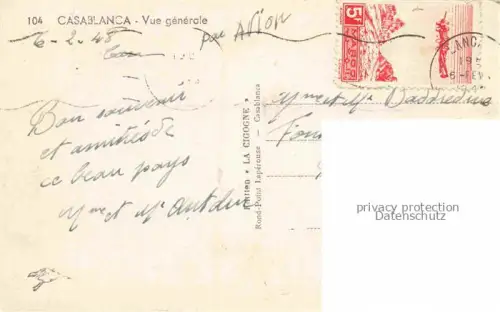 104 CASABLANCA - Vue générale
6-2-48
par Avion
5F
MAROC
19
6-FEV
Bon souvenir
et amitiés de
ce beau pays
Mme et Mr
Mme et Mr
Edition * LA CIGOGNE *
Rond-Point Lapérouse - Casablanca
privacy protection
Datenschutz